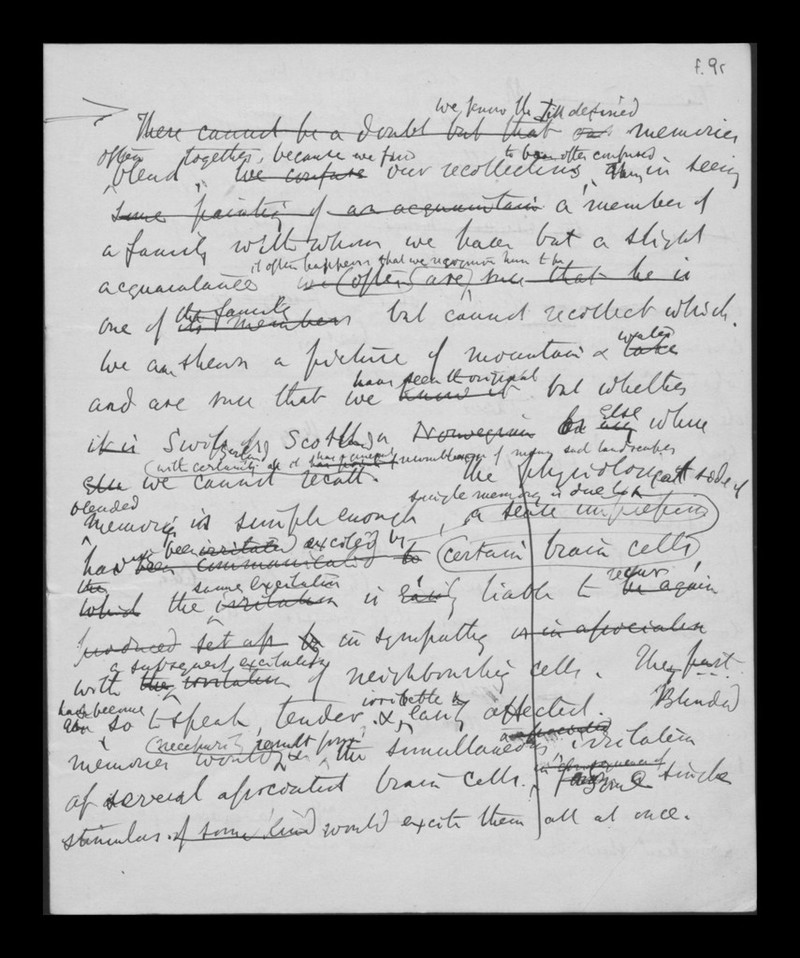 f. 9r
we know the ill defined
There cannot be a doubt but that our memories
often together, because we find to be often confused
blend we confuse our recollections. Thus in seeing
some painting of an acquaintain a member of
a family with whom we have but a slight
it often happens that we recognise him to be
acquaintance we often are sure that he is
the family
one of its members but cannot recollect which.
water
We are shewn a picture of mountain & lake
have seen the original
and are sure that we know it but whether
else
it is Switzd, Scotland or Norwegian or any where
with certainty as it has a general resemblance of many such landscapes
else we cannot recall The physiological side of
blended single memory is due
memories is simple enough, a sense impression
been irritated excited by
had been communicated to certain brain cells
the same excitation recur
which the irritation is easily liable to be again
produced set up by in sympathy or in association
a subsequent excitation
with the irritation of neighbouring cells. They first
have become irritable &
are so to speak, tender & easily affected. Blended
necessarily result from associated
memories would the simultaneous irritation
in consequence of
of several associated brain cells. a single
stimulus of some kind would excite them all at once.